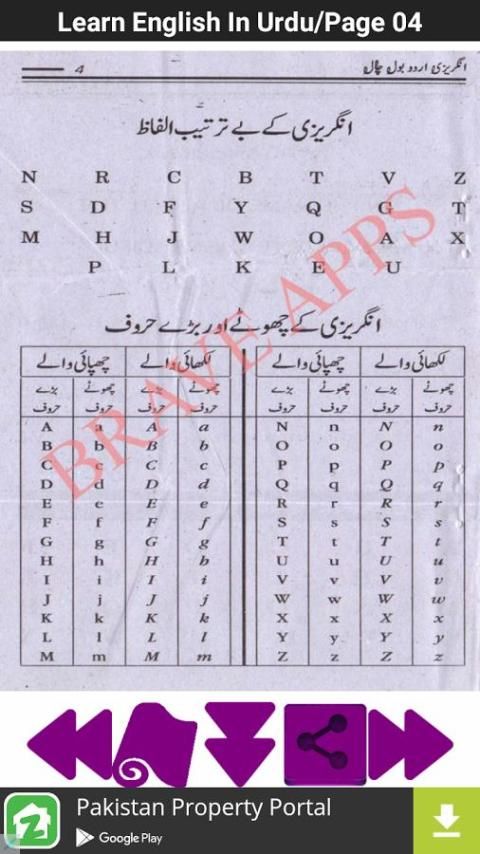 Learn English In Urdu/Page 04
انگریزی اردو بول چال 4
انگریزی کے بے ترتیب الفاظ
N R C B T V Z
S D F Y Q G T
M H J W O A X
P L K E U
انگریزی کے چھوٹے اور بڑے حروف
چھپائی والے لکھائی والے چھپائی والے لکھائی والے
بڑے حروف چھوٹے حروف بڑے حروف چھوٹے حروف بڑے حروف چھوٹے حروف بڑے حروف چھوٹے حروف
A a A a N n N n
B b B b O o O o
C c C c P p P p
D d D d Q q Q q
E e E e R r R r
F f F f S s S s
G g G g T t T t
H h H h U u U u
I i I i V v V v
J j J j W w W w
K k K k X x X x
L l L l Y y Y y
M m M m Z z Z z
BRAVE APPS
Pakistan Property Portal
Google Play